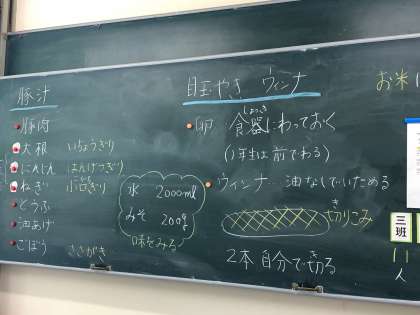 豚汁
豚肉
大根 いちょうぎり
にんじん はんげつぎり
ねぎ 小口ぎり
とうふ
油あげ
ごぼう ささがき
水 2000ml
みそ 200g
味をみる
目玉やき ウィンナ
卵 食器にわっておく
しょっき
(1年生は前でわる)
ウィンナ 油なしでいためる
切りこみ
き
2本 自分で切る
き
お米
三班
11人